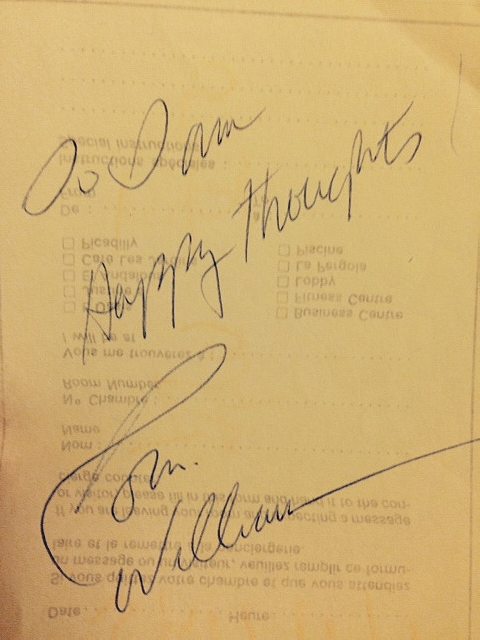 To Sam
Happy Thoughts
Williams
Date Heure
Si vous quittez votre chambre et que vous attendiez
un message ou un visiteur, veuillez remplir ce formu-
laire et le remettre à la conciergerie
If you are leaving your room and expecting a message
or visitor, please fill in this form and hand it to the con-
cierge
Nom :
Name
N° Chambre :
Room Number
Vous me trouverez à :
I will be at
Business Centre
Fitness Centre
Lobby
Café Les La Pergola
Picadilly Piscine
De : à
From
Instructions spéciales :
Special Instructions